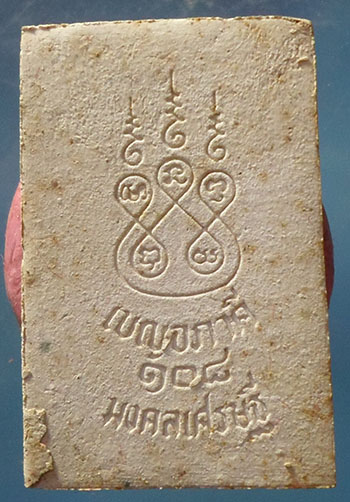 เบญจภาคี
๑๐๘
มงคลเศรษฐี